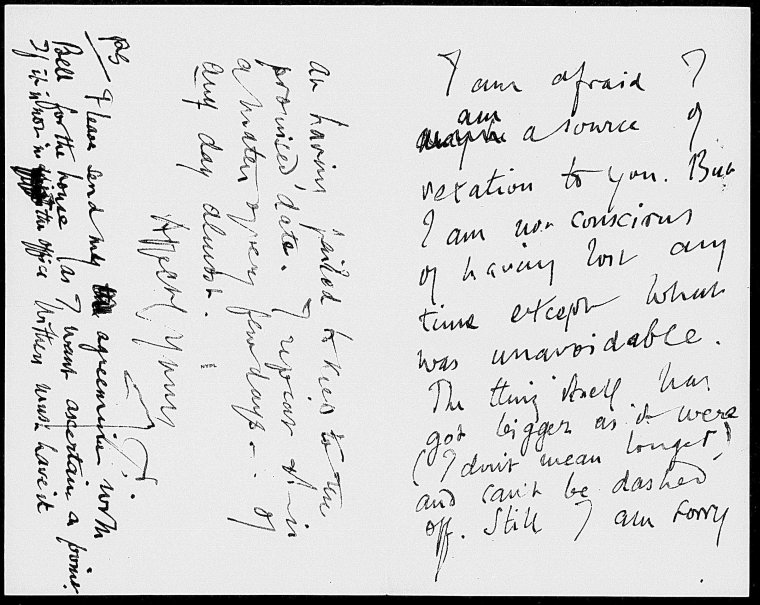 I am afraid I
am
a source of
vexation to you. But
I am not conscious
of having lost any
time except what
was unavoidable.
The thing itself has
got bigger as it were
(I don't mean longer)
and can't be dashed
off. Still I am sorry
at having failed to keep to the
promised date. I repeat it is
a matter of very few days - of
any day almost.
Affectly Yours
PS Please send me agreement with
Bell for the house as I want ascertain a point.
If it is not in the office Withers must have it